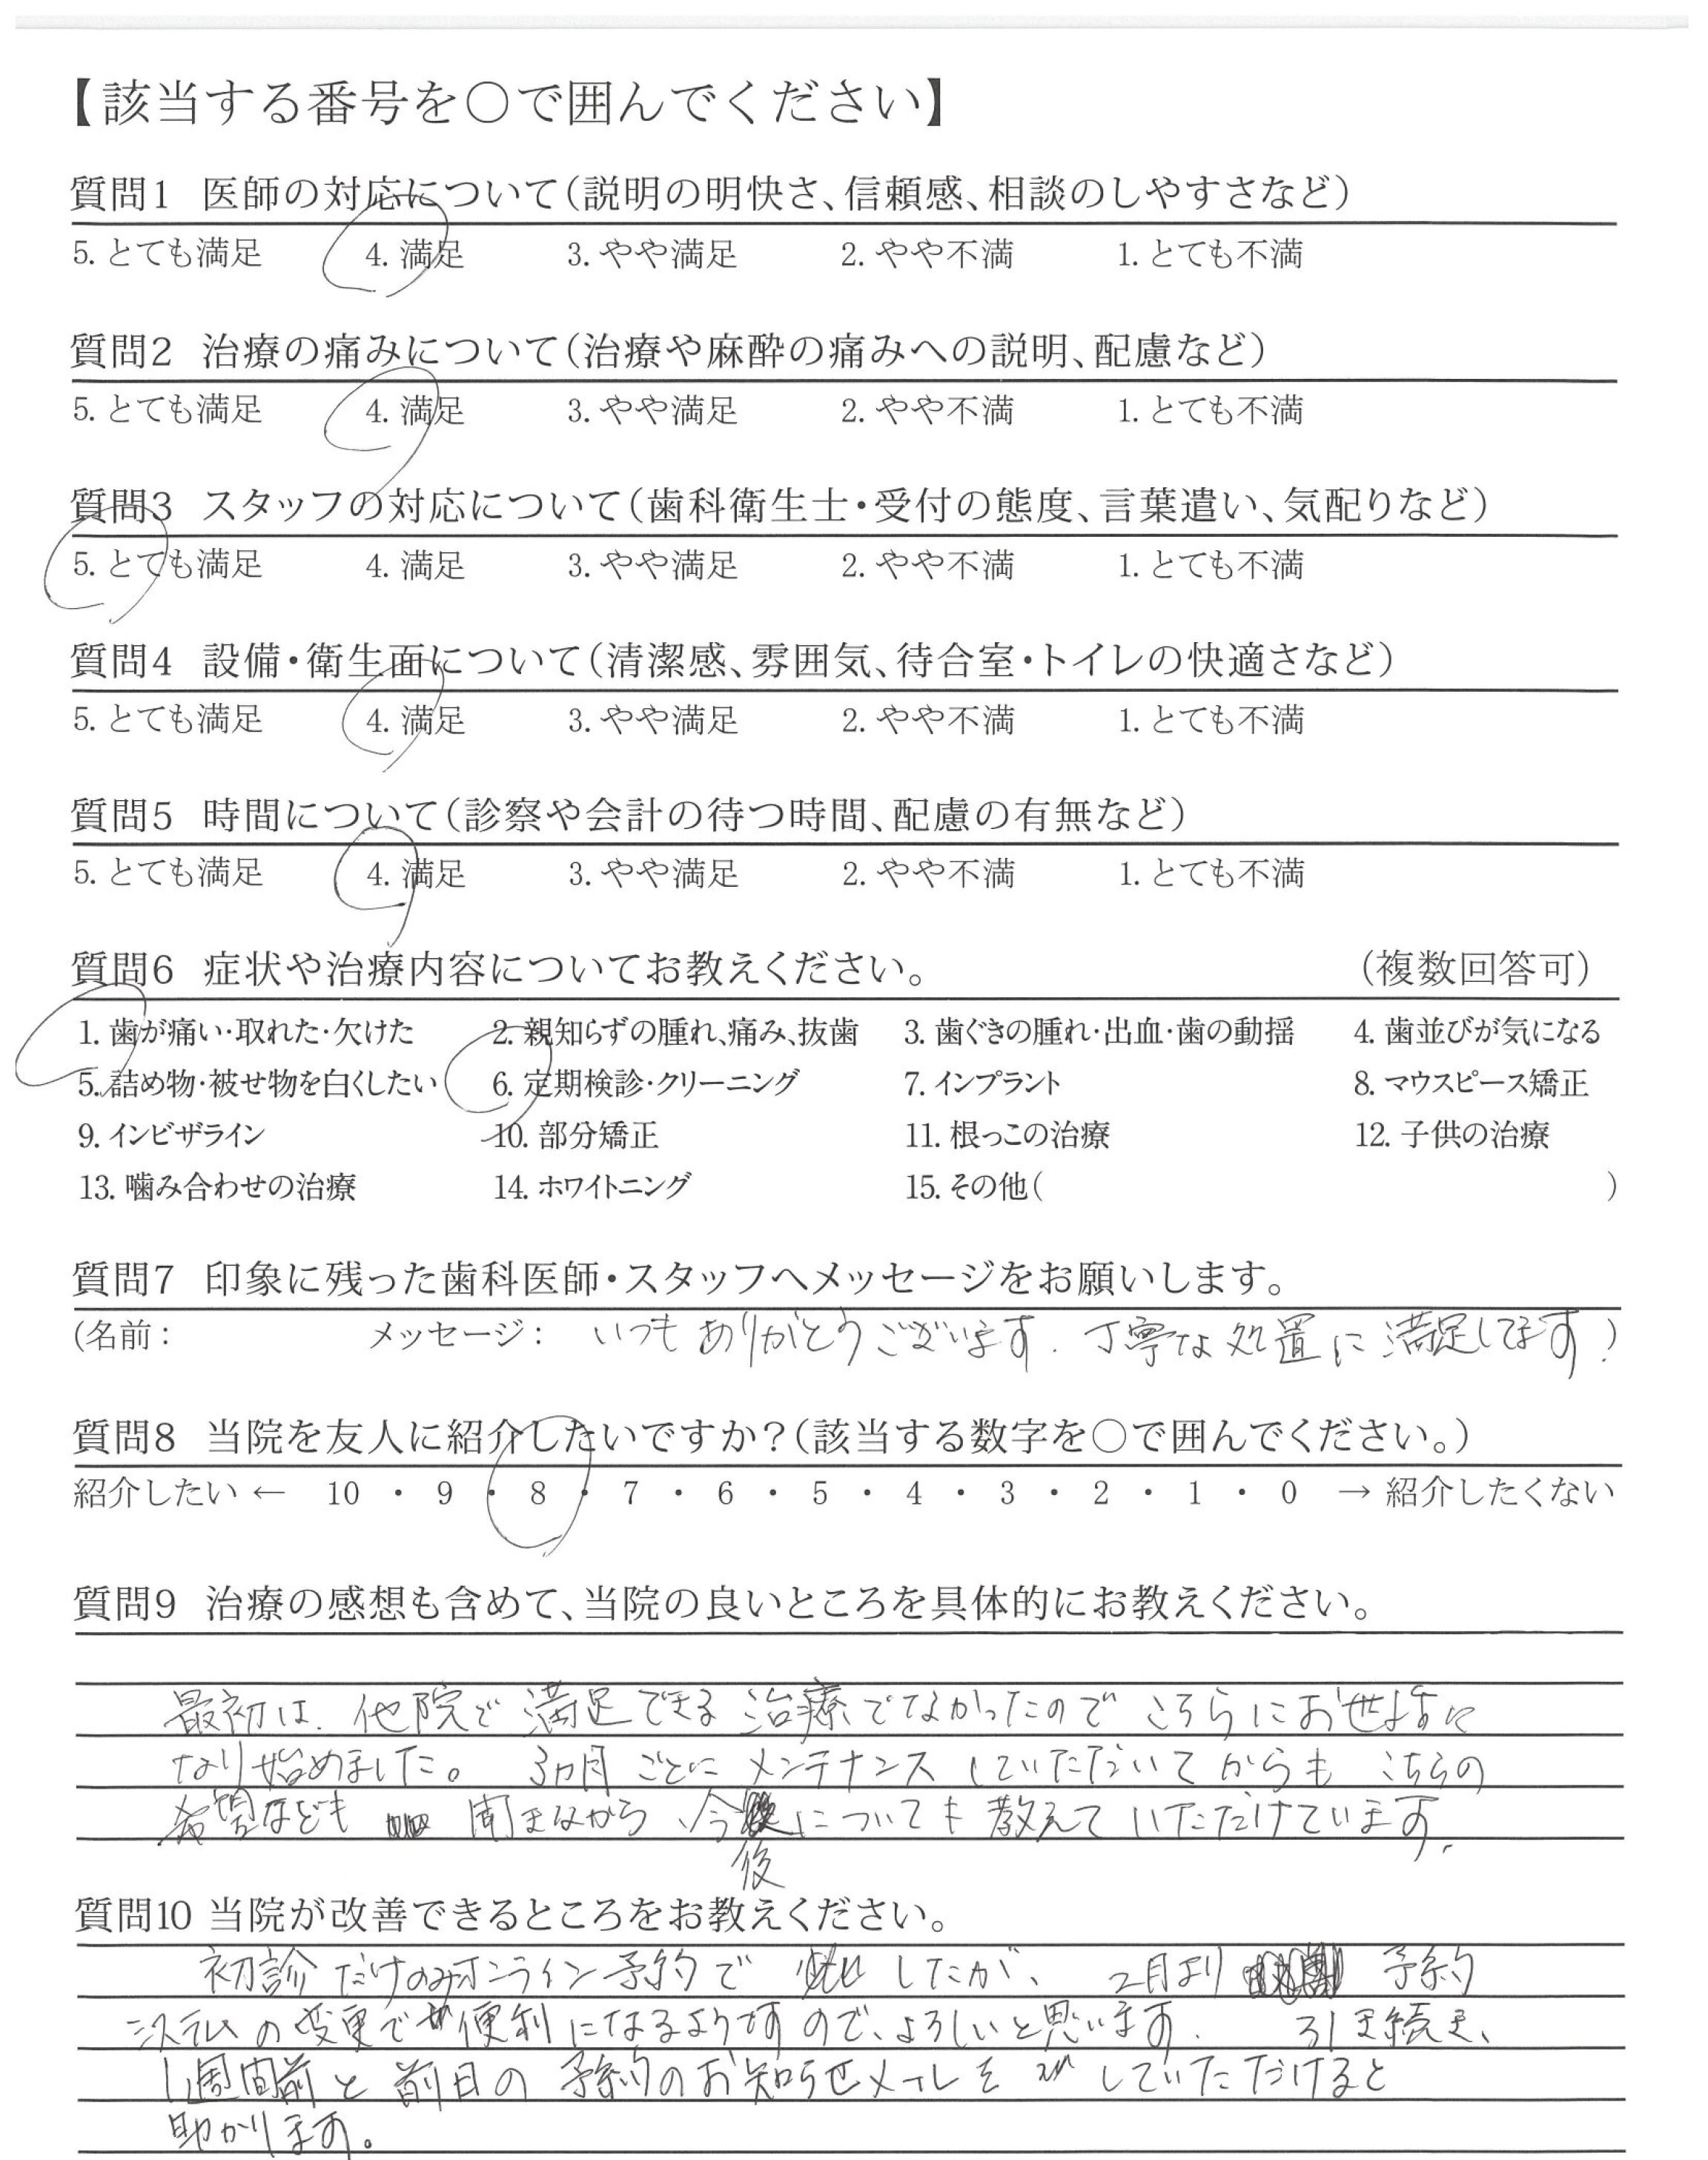 【該当する番号を○で囲んでください】
質問1 医師の対応について(説明の明快さ、信頼感、相談のしやすさなど)
5. とても満足 4. 満足 3. やや満足 2. やや不満 1. とても不満
質問2 治療の痛みについて(治療や麻酔の痛みへの説明、配慮など)
5. とても満足 4. 満足 3. やや満足 2. やや不満 1. とても不満
質問3 スタッフの対応について(歯科衛生士・受付の態度、言葉遣い、気配りなど)
5. とても満足 4. 満足 3. やや満足 2. やや不満 1. とても不満
質問4 設備・衛生面について(清潔感、雰囲気、待合室・トイレの快適さなど)
5. とても満足 4. 満足 3. やや満足 2. やや不満 1. とても不満
質問5 時間について(診察や会計の待つ時間、配慮の有無など)
5. とても満足 4. 満足 3. やや満足 2. やや不満 1. とても不満
質問6 症状や治療内容についてお教えください。 (複数回答可)
1. 歯が痛い・取れた・欠けた 2. 親知らずの腫れ、痛み、抜歯 3. 歯ぐきの腫れ・出血・歯の動揺 4. 歯並びが気になる
5. 詰め物・被せ物を白くしたい 6. 定期検診・クリーニング 7. インプラント 8. マウスピース矯正
9. インビザライン 10. 部分矯正 11. 根っこの治療 12. 子供の治療
13. 噛み合わせの治療 14. ホワイトニング 15. その他( )
質問7 印象に残った歯科医師・スタッフへメッセージをお願いします。
(名前: メッセージ: いつもありがとうございます. 丁寧な処置に満足してます)
質問8 当院を友人に紹介したいですか?(該当する数字を○で囲んでください。)
紹介したい ← 10 ・ 9 ・ 8 ・ 7 ・ 6 ・ 5 ・ 4 ・ 3 ・ 2 ・ 1 ・ 0 → 紹介したくない
質問9 治療の感想も含めて、当院の良いところを具体的にお教えください。
最初は、他院で満足できる治療でなかったのでこちらにお世話に
なり始めました。 3ヵ月ごとにメンテナンスしていただいてからもこちらの
希望なども 聞きながら、今後についても教えていただけています.
質問10 当院が改善できるところをお教えください。
初診だけのみオンライン予約で したが、2月より 予約
システムの変更で 便利になるようですので、よろしいと思います. 引き続き、
1週間前と前日の予約のお知らせメールを していただけると
助かります。